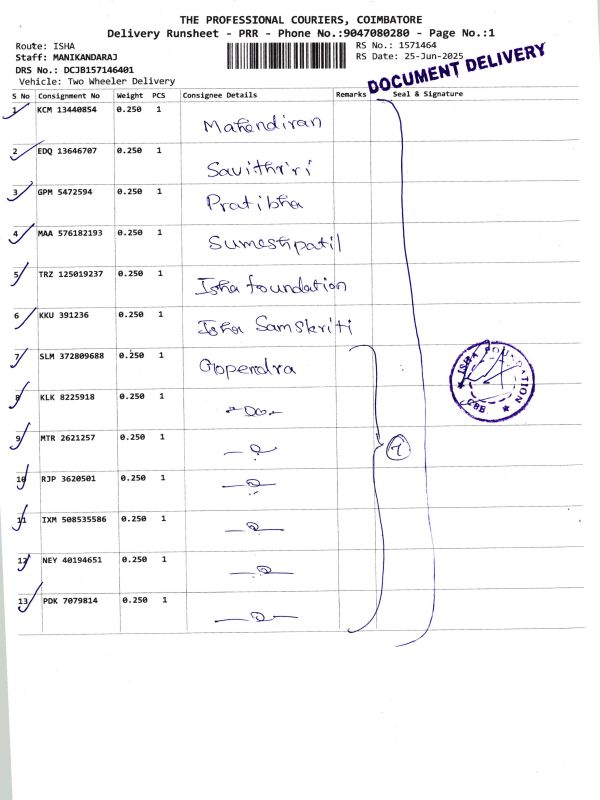 THE PROFESSIONAL COURIERS, COIMBATORE
Delivery Runsheet - PRR - Phone No.:9047080280 - Page No.:1
Route: ISHA
Staff: MANIKANDARAJ
DRS No.: DCJB157146401
Vehicle: Two Wheeler Delivery
RS No.: 1571464
RS Date: 25-Jun-2025
DOCUMENT DELIVERY
S No Consignment No Weight PCS Consignee Details Remarks Seal & Signature
1 KCM 13440854 0.250 1 Mahendiran
2 EDQ 13646707 0.250 1 Savithriri
3 GPM 5472594 0.250 1 Pratibha
4 MAA 576182193 0.250 1 Sumeshpatil
5 TRZ 125019237 0.250 1 Isha foundation
6 KKU 391236 0.250 1 Isha Samskriti
7 SLM 372809688 0.250 1 Gopendra
8 KLK 8225918 0.250 1 -Do-
9 MTR 2621257 0.250 1
10 RJP 3620501 0.250 1
11 IXM 508535586 0.250 1
12 NEY 40194651 0.250 1
13 PDK 7079814 0.250 1
7
ISHA FOUNDATION
CBE